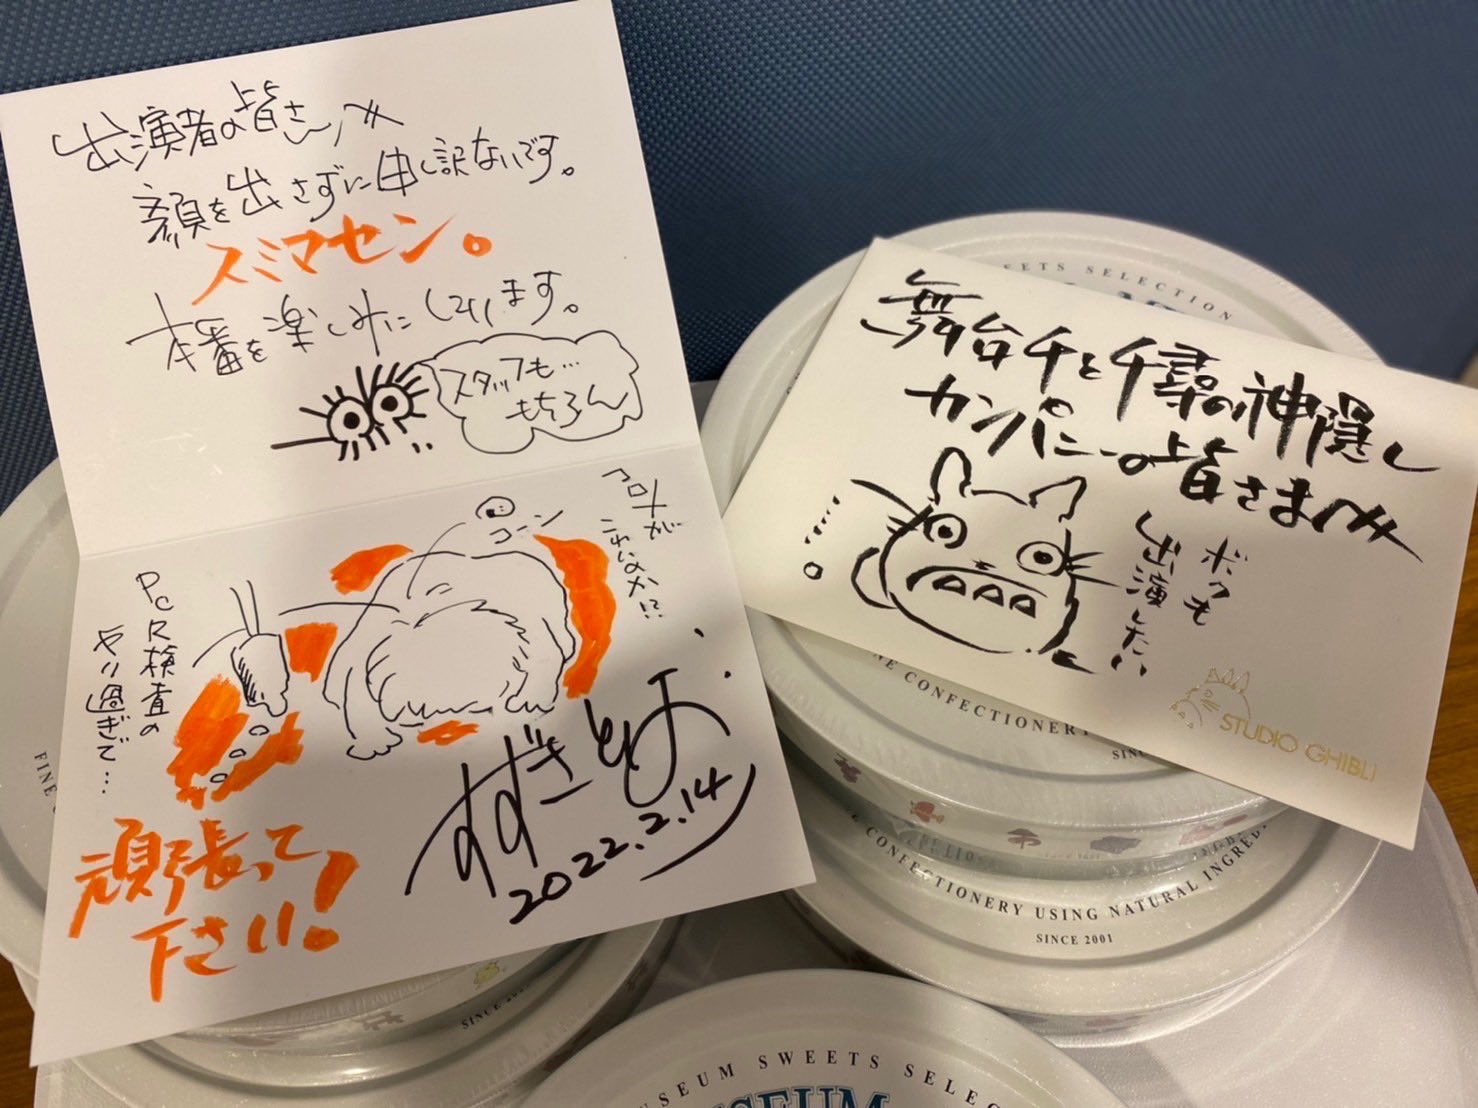 出演者の皆さんへ
顔を出さずに申し訳ないです。
スミマセン。
本番を楽しみにしています。
スタッフも…
もちろん
コーン
PCR検査の
やり過ぎで…
頑張って
下さい!
すずきとしお
2022.2.14
舞台千と千尋の神隠し
カンパニーの皆さまへ
ボクも
出演したい
……。
STUDIO GHIBLI
SWEETS SELECTION
FINE CONFECTIONERY
SINCE
CONFECTIONERY USING NATURAL INGRED
SINCE 2001
FINE
SINCE 20
USEUM SWEETS SELEC
SEUM